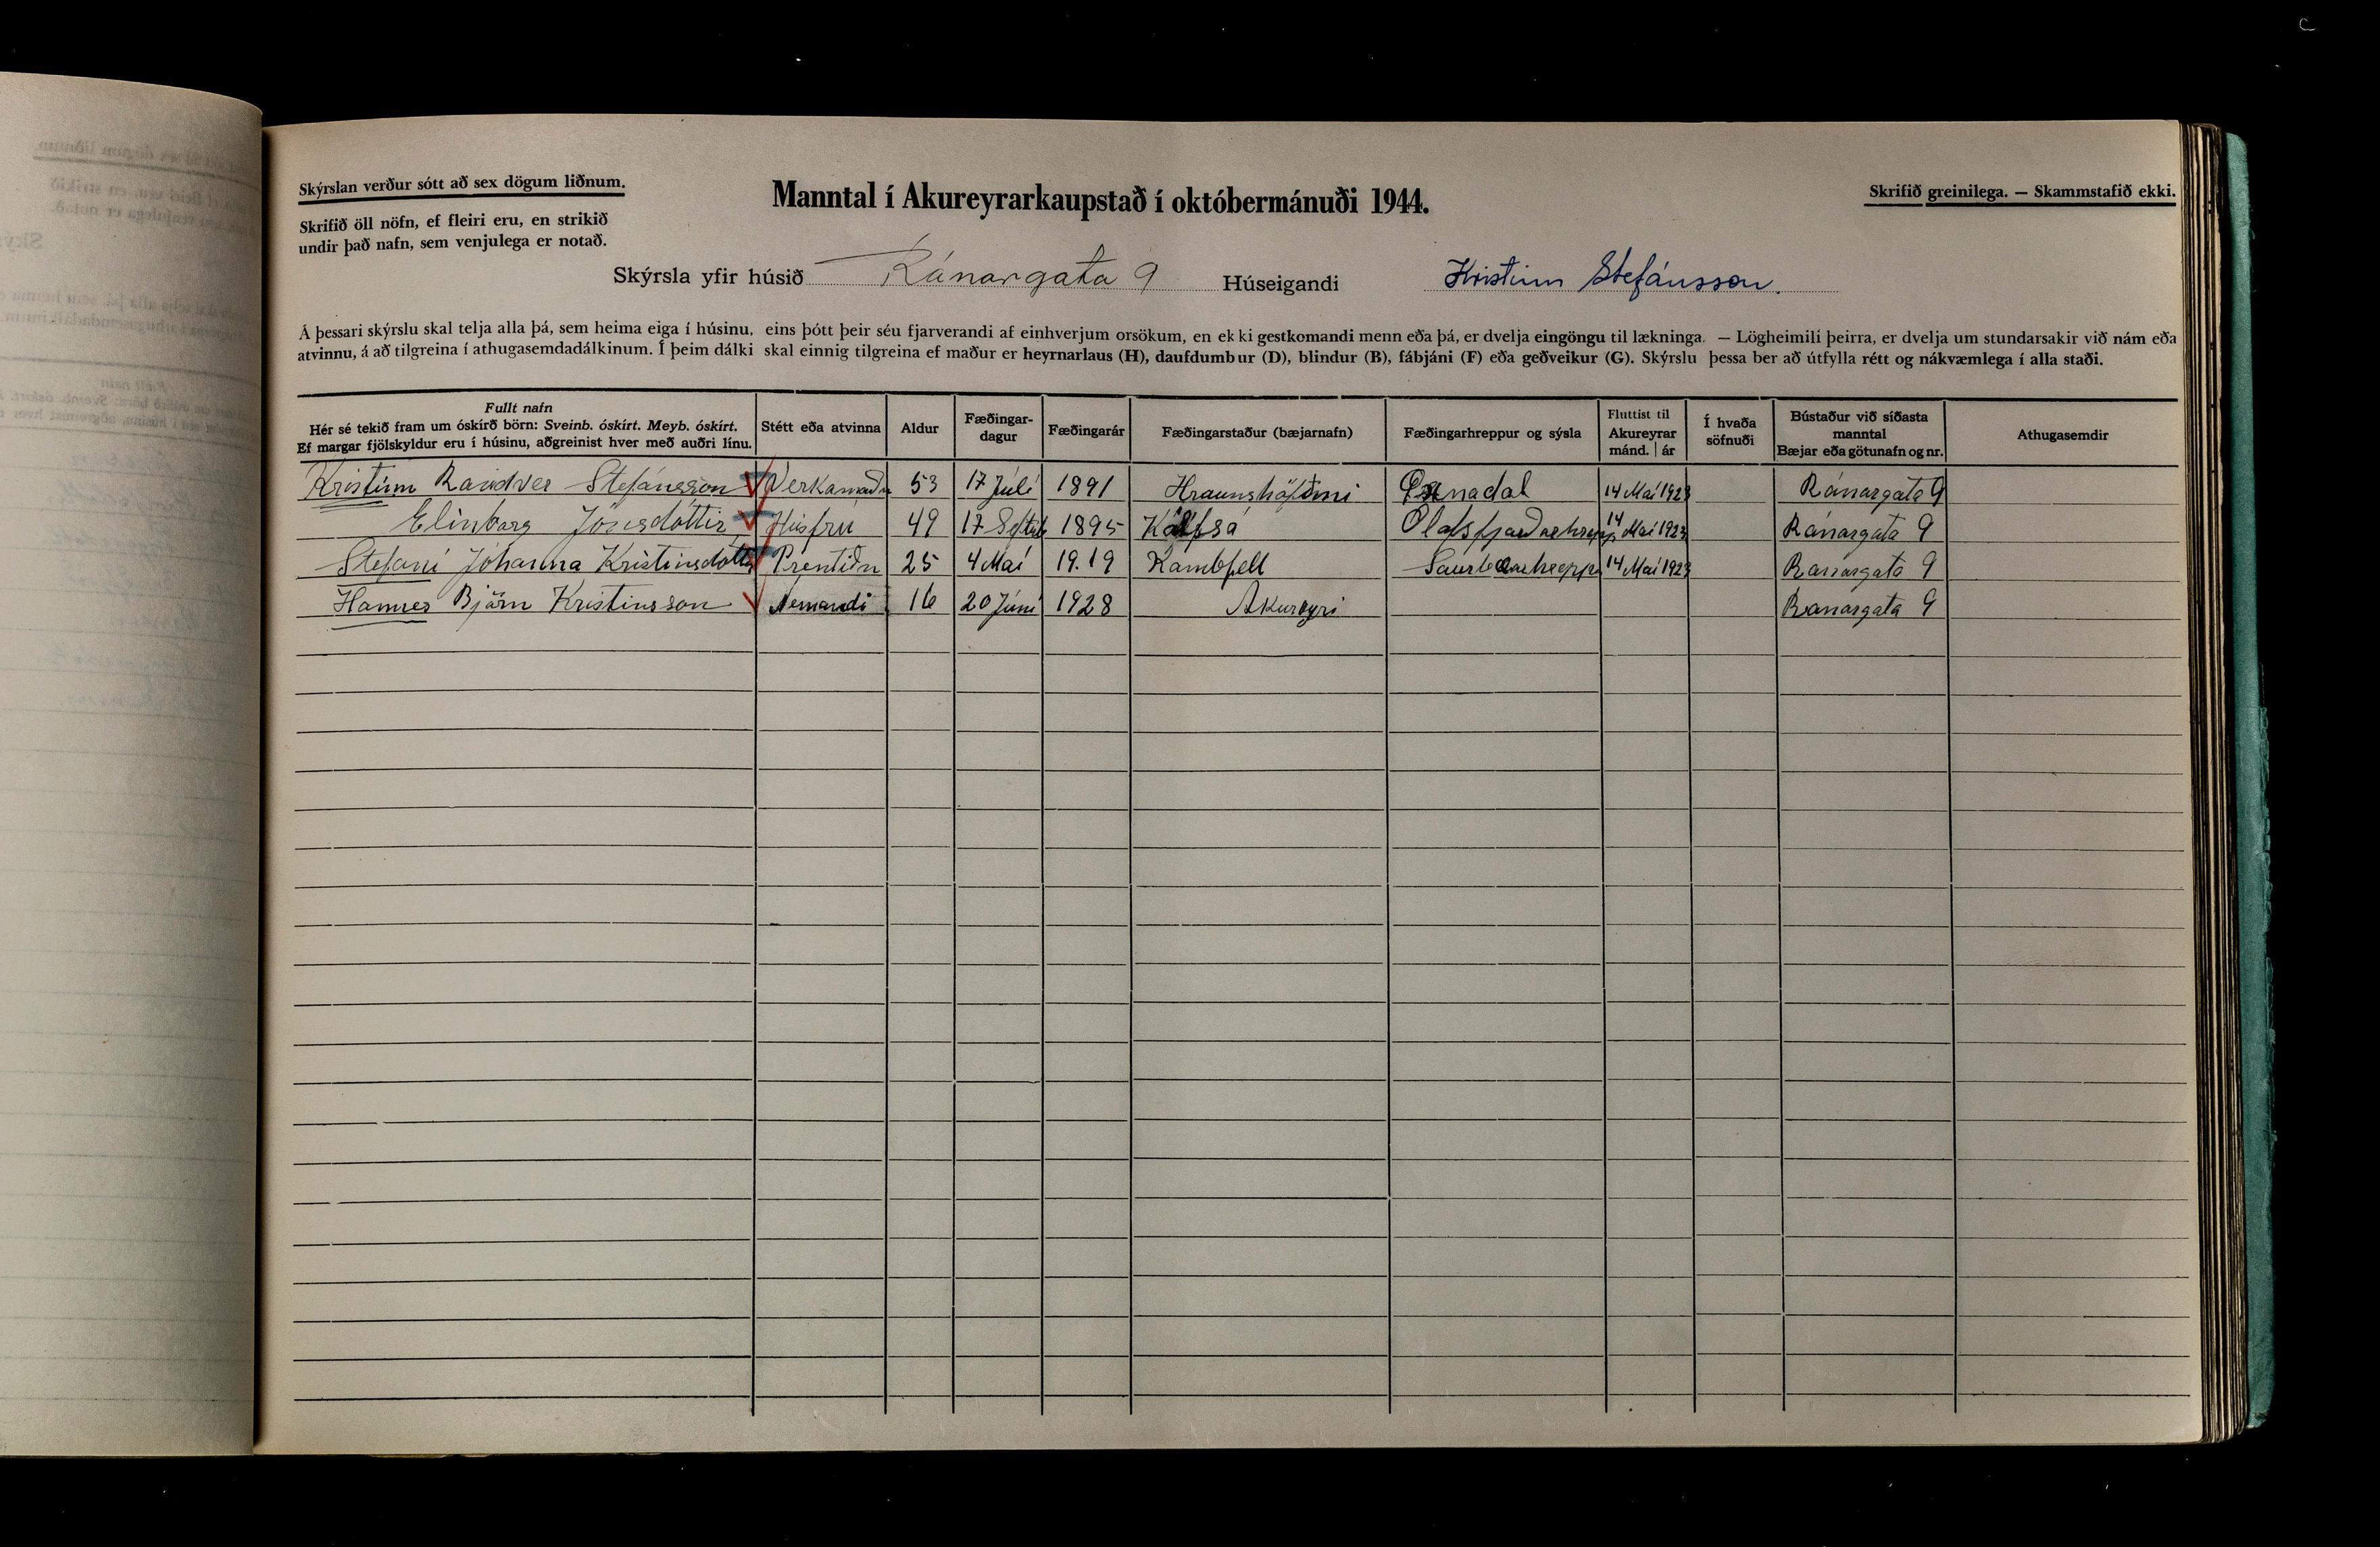 Skýrslan verður sótt að sex dögum liðnum.
Skrifið öll nöfn, ef fleiri eru, en strikið
undir það nafn, sem venjulega er notað.
Manntal í Akureyrarkaupstað í októbermánuði 1944.
Skrifið greinilega. — Skammstafið ekki.
Skýrsla yfir húsið Ránargata 9 Húseigandi Kristinn Stefánsson.
Á þessari skýrslu skal telja alla þá, sem heima eiga í húsinu, eins þótt þeir séu fjarverandi af einhverjum orsökum, en ekki gestkomandi menn eða þá, er dvelja eingöngu til lækninga. — Lögheimili þeirra, er dvelja um stundarsakir við nám eða
atvinnu, á að tilgreina í athugasemdadálkinum. Í þeim dálki skal einnig tilgreina ef maður er heyrnarlaus (H), daufdumbur (D), blindur (B), fábjáni (F) eða geðveikur (G). Skýrslu þessa ber að útfylla rétt og nákvæmlega í alla staði.
Fullt nafn
Hér sé tekið fram um óskírð börn: Sveinb. óskírt. Meyb. óskírt.
Ef margar fjölskyldur eru í húsinu, aðgreinist hver með auðri línu.
Stétt eða atvinna
Aldur
Fæðingar-
dagur
Fæðingarár
Fæðingarstaður (bæjarnafn)
Fæðingarhreppur og sýsla
Fluttist til
Akureyrar
mánd. | ár
Í hvaða
söfnuði
Bústaður við síðasta
manntal
Bæjar eða götunafn og nr.
Athugasemdir
Kristinn Randver Stefánsson Verkamaðu 53 17 Júlí 1891 Hraunshöfðini Öxnadal 14 Maí 1923 Ránargata 9
Elinborg Jónsdóttir Húsfrú 49 17 Septeb 1895 Kálfsá Olafsfjarðarhrepp 14 Maí 1923 Ránargata 9
Stefaní Jóhanna Kristinsdóttir Prentiðn 25 4 Maí 19.19 Kambfell Saurbæarhrepp 14 Maí 1923 Ranargata 9
Hannes Björn Kristinsson Nemandi 16 20 Júní 1928 Akureyri Ranargata 9